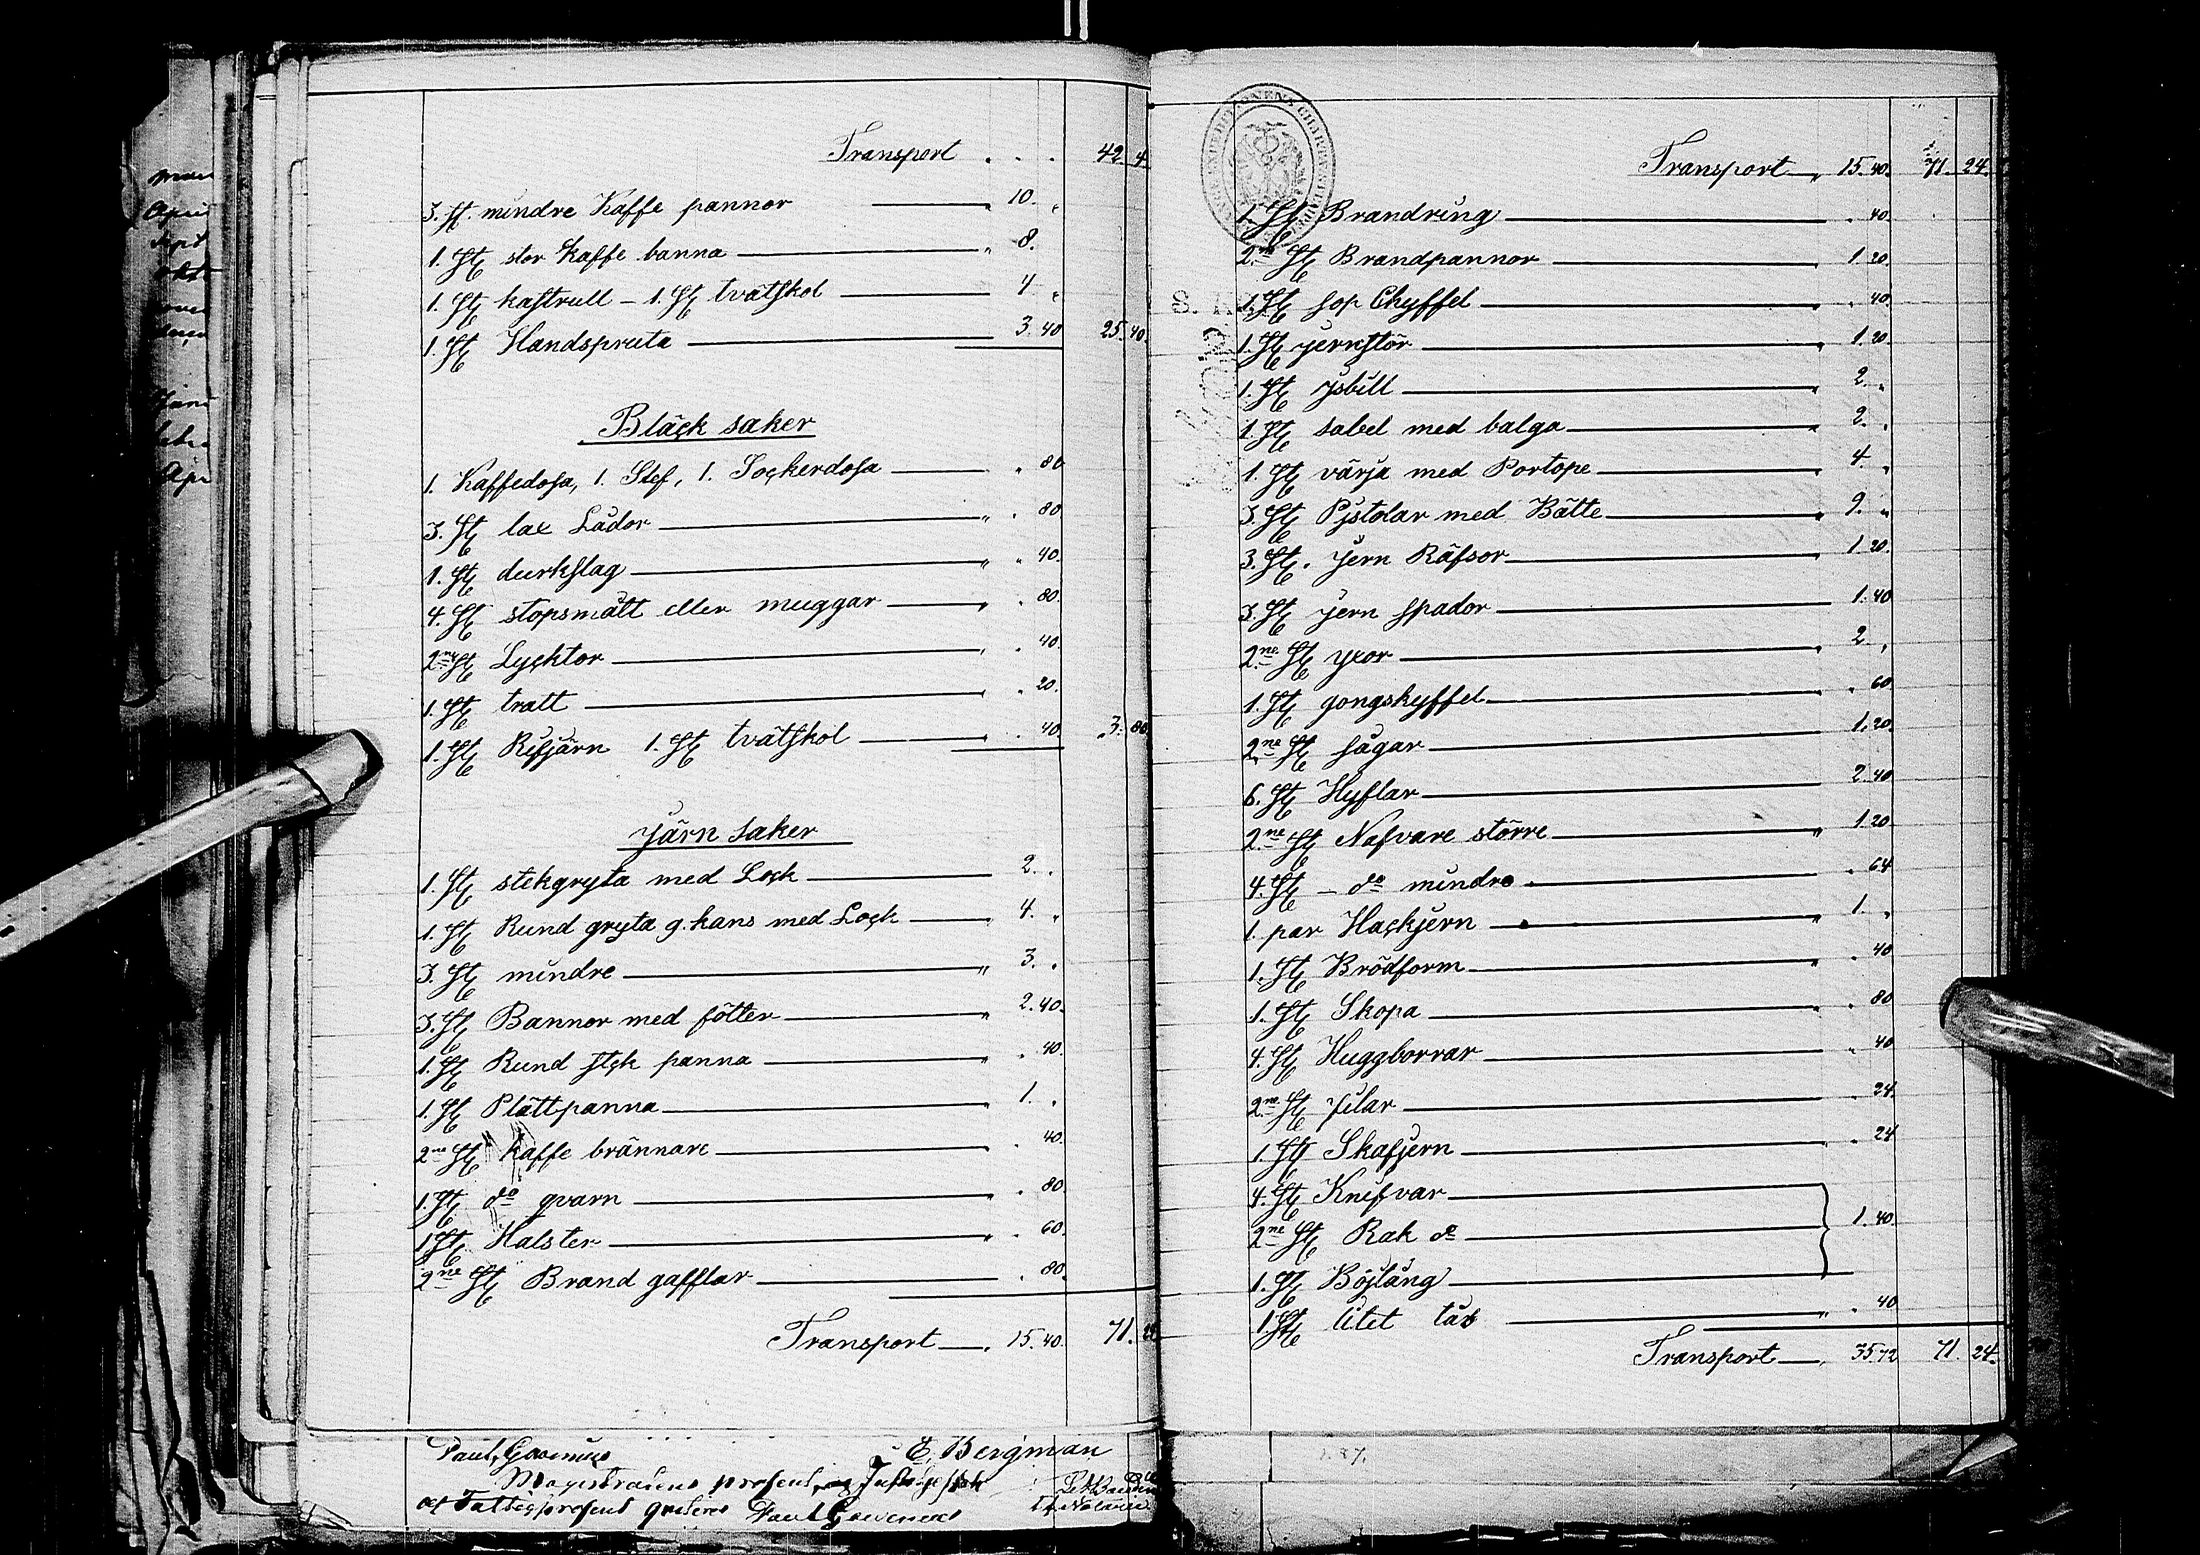 Transport . . . 42. 4
3. St. mindre Kaffe pannor " 10. "
1. St stor Kaffe banna " 8.
1. St kastrull – 1. St tvätskol 4 "
1. St Handspruta 3. 40 25. 40
Bläck saker
1. Kaffedosa, 1. Stef, 1. Sockerdosa " 80
3. St lax Lådor " . 80
1. St durkslag " " 40.
4. St stopsmått eller muggar " . 80.
2ne St Lycktor . 40.
1. St tratt " . 20.
1. St Rifjärn 1. St tvätskol . 40. 3. 80
Järn saker
1. St stekgryta med Lock 2. .
1. St Rund gryta g. hans med Lock " 4. "
3. St mindre " 3. .
3. St Bannor med fötter " 2. 40.
1. St Rund stek panna " . 40.
1. St Plättpanna " 1. .
2ne St Kaffe brännare . 40.
1. St do qvarn " . 80.
1 St Halster " . 60.
2ne St Brand gafflar . 80.
Transport . 15. 40. 71. 24
Paul
E. Bergman
Transport " 15. 40. 71. 24.
1. St Brandring . 40.
2ne St Brandpannor " 1. 20.
1. St sop Chyffel " 40.
1. St yernstör " 1. 20.
1. St ysbill " 2. "
1. St sabel med balga " 2. "
1. St värja med Portope " 4. "
3. St Pystolar med Bätte " 9. "
3. St. yern Räfsor 1. 20.
3. St yern spador 1. 40
2ne St yxor " 2 "
1. St gongskyffel " . 60
2ne St sågar " 1. 20.
6. St Hyflar 2. 40
2ne St Nafvare större " 1. 20
4. St – do mindre . 64
1. par Hackjern " 1. "
1. St Brödform " . 40
1. St Skopa " . 80
4. St Huggborrar " 40
2ne St filar " . 24.
1. St Skafjern " . 24
4. St Knifvar
2ne St Rak do 1. 40.
1. St Böjtång
1. St litet lås " . 40
Transport " 35 72 71. 24.